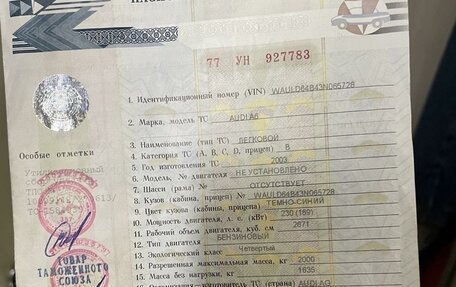 77 УН 927783
1. Идентификационный номер (VIN) WAULD64B43N065728
2. Марка, модель ТС AUDI A6
3. Наименование (тип ТС) ЛЕГКОВОЙ
Особые отметки
4. Категория ТС (A, B, C, D, прицеп) B
5. Год изготовления ТС 2003
6. Модель, № двигателя НЕ УСТАНОВЛЕНО
7. Шасси (рама) № ОТСУТСТВУЕТ
8. Кузов (кабина, прицеп) № WAULD64B43N065728
9. Цвет кузова (кабины, прицепа) ТЕМНО-СИНИЙ
10. Мощность двигателя, л. с. (кВт) 230 (169)
11. Рабочий объем двигателя, куб. см 2671
12. Тип двигателя БЕНЗИНОВЫЙ
13. Экологический класс Четвертый
14. Разрешенная максимальная масса, кг 2000
15. Масса без нагрузки, кг 1635
(страна) AUDI AG
ТОВАР
ТАМОЖЕННОГО
СОЮЗА